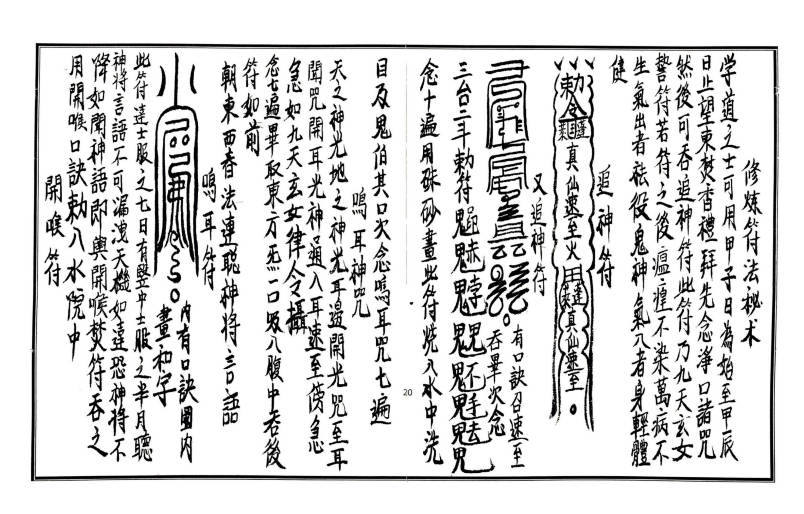 修煉符法秘术
学道之士可用甲子日為始至甲辰
日止望東焚香禮拜先念淨口諸咒
然後可吞追神符此符乃九天玄女
誓符若符之後瘟㾮不染萬病不
生氣出者祛役鬼神氣入者身輕體
健
追神符
勅令
真仙速至火
真仙速至
又追神符
有口訣召速至
吞畢次念
三台三斗勅符
念十遍用硃砂畫此符焼入水中洗
目及鬼伯其口次念鳴耳咒七遍
鳴耳神咒
天之神光地之神光耳邊開光咒至耳
聞咒開耳光神逼入耳速至傍急
急如九天玄女律令攝
念七遍畢取東方炁一口吸入腹中吞後
符如前
朝東西香法連聪神將言語
鳴耳符
内有口訣圈内
畫和字
此符達士服之七日有竪中士服之半月聽
神將言語不可漏洩天機如違恐神將不
降如聞神語即與開喉焚符吞之
用開喉口訣勅入水院中
開喉符
20